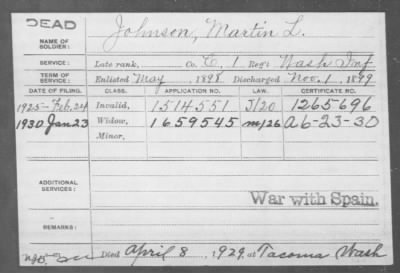 DEAD
NAME OF SOLDIER: Johnson, Martin L.
SERVICE: Late rank, Co. C, 1 Reg't Wash Inf
TERM OF SERVICE: Enlisted May, 1898 Discharged Nov. 1, 1899
DATE OF FILING. CLASS. APPLICATION NO. LAW. CERTIFICATE NO.
1925-Feb.24 Invalid, 1514551 J/20 1265696
1930 Jan 23 Widow, 1659545 m/26 A 6-23-30
Minor,
ADDITIONAL SERVICES:
War with Spain.
REMARKS:
Died April 8, 1929, at Tacoma Wash